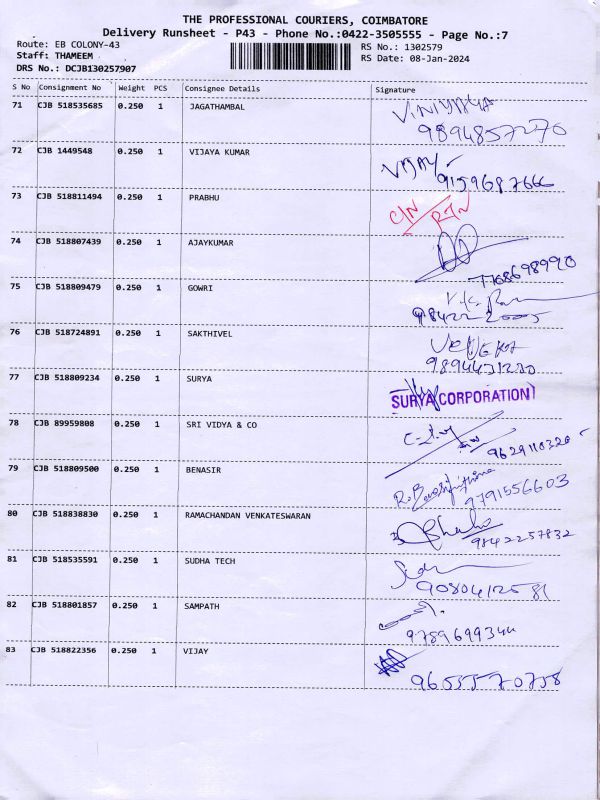 THE PROFESSIONAL COURIERS, COIMBATORE
Delivery Runsheet - P43 - Phone No.:0422-3505555 - Page No.:7
Route: EB COLONY-43
RS No.: 1302579
Staff: THAMEEM
RS Date: 08-Jan-2024
DRS No.: DCJB130257907
S No Consignment No Weight PCS Consignee Details Signature
71 CJB 518535685 0.250 1 JAGATHAMBAL
9894857270
72 CJB 1449548 0.250 1 VIJAYA KUMAR VIJAY
9159687666
73 CJB 518811494 0.250 1 PRABHU C/N RTN
74 CJB 518807439 0.250 1 AJAYKUMAR
7708698990
75 CJB 518809479 0.250 1 GOWRI
76 CJB 518724891 0.250 1 SAKTHIVEL
77 CJB 518809234 0.250 1 SURYA SURYA CORPORATION
78 CJB 89959808 0.250 1 SRI VIDYA & CO
9629110320
79 CJB 518809500 0.250 1 BENASIR
9791556603
80 CJB 518838830 0.250 1 RAMACHANDAN VENKATESWARAN
9842257832
81 CJB 518535591 0.250 1 SUDHA TECH
9080412581
82 CJB 518801857 0.250 1 SAMPATH
9789699344
83 CJB 518822356 0.250 1 VIJAY
9655570758